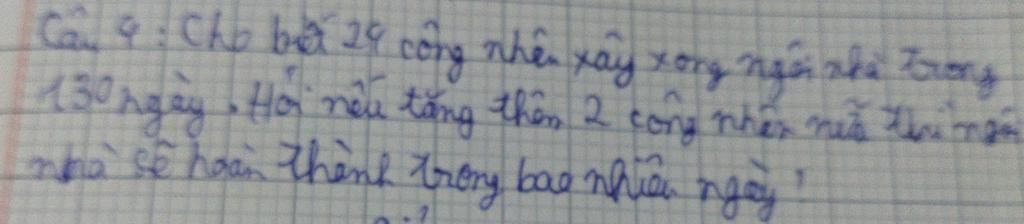 Câu 4 : Cho biết 24 công nhân xây xong ngôi nhà trong
130 ngày. Hỏi nếu tăng thêm 2 công nhân nữa thì ngôi
nhà sẽ hoàn thành trong bao nhiêu ngày?